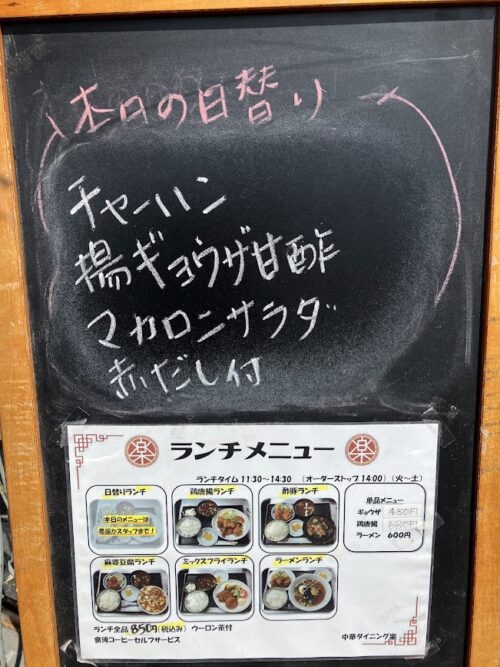 本日の日替り
チャーハン
揚ギョウザ甘酢
マカロンサラダ
赤だし付
楽 ランチメニュー 楽
ランチタイム 11:30～14:30 (オーダーストップ 14:00) (火～土)
日替りランチ
本日のメニューは
黒板かスタッフまで！
鶏唐揚ランチ
酢豚ランチ
単品メニュー
ギョウザ 450円
鶏唐揚 680円
ラーメン 600円
麻婆豆腐ランチ
ミックスフライランチ
ラーメンランチ
ランチ全品 850円(税込み) ウーロン茶付
食後コーヒーセルフサービス
中華ダイニング楽